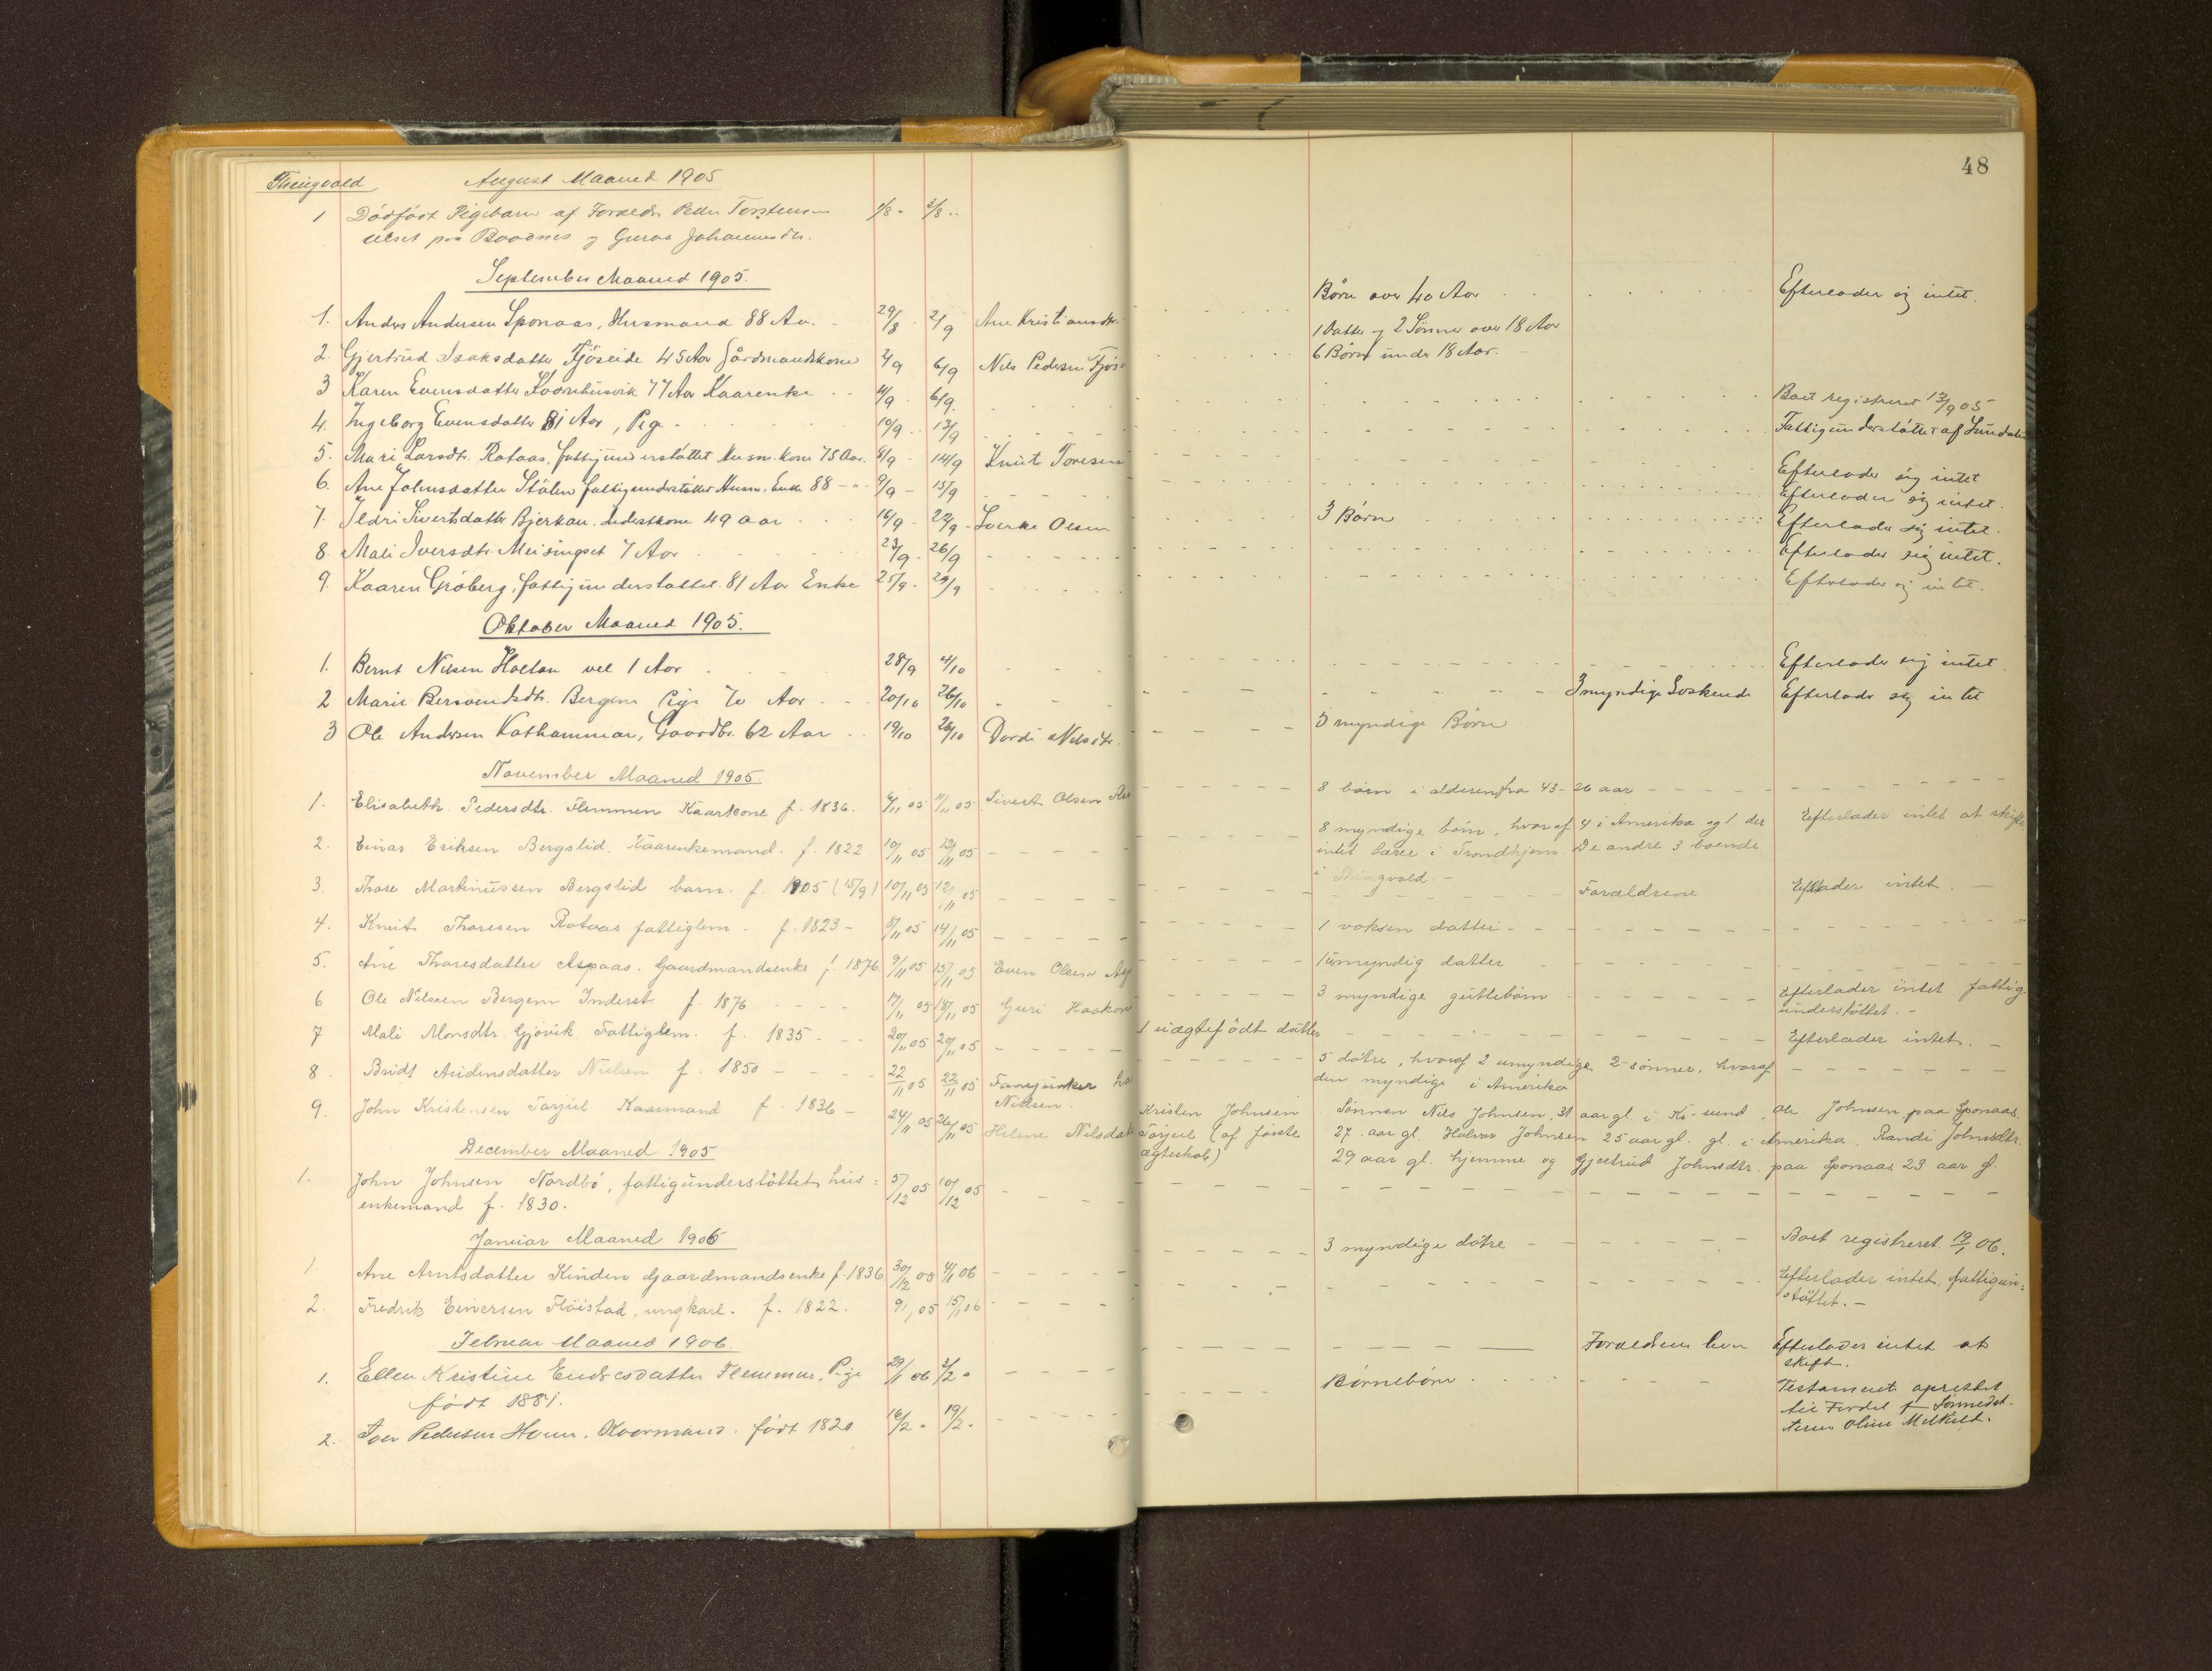 48
Thingvold August Maaned 1905
1 Dödfödt Pigebarn af Foræld. Peder Torstens-
paa Boodnes og Guroa Johannesdtr.
September Maaned 1905.
1. Anders Andersen Sponaas, Husmand 88 Aar. 29/8 2/9 Ane Kristiansdtr. Börn over 40 Aar Efterlader sig intet.
2. Gjertrud Isaksdatter Fjöseide 45 Aar Gårdmandskone 2/9 6/9 Nils Pedersen Fjös 1 Datter og 2 Sönner over 18 Aar
6 Börn under 18 Aar.
3 Karen Evensdatter Koornhusvik 77 Aar Kaarenke 4/9 6/9. Boet registreret 13/9 05
4. Ingeborg Evensdatter 81 Aar, Pige 10/9 13/9 Fattigunderstöttet af Sundalen
5. Mari Larsdtr. Rotaas, fattigunderstöttet Husm. kone 75 Aar. 8/9 14/9 Knut Toresen Efterlader sig intet
6. Ane Johnsdatter Stölen fattigunderstöttet Husm. Enke 88 - 9/9 - 15/9 Efterlader sig intet.
7. Ildri Sivertsdatter Bjerkan. Inderstkone 49 aar 16/9 - 22/9 - Sverke Olsen 3 Börn Efterlader sig intet.
8. Mali Iversdtr. Meisingset 7 Aar 23/9 - 26/9 Efterlader sig intet.
9. Kaaren Gröberg, fattigunderstöttet 81 Aar Enke 25/9 - 29/9 Efterlader sig intet.
Oktober Maaned 1905.
1. Bernt Nilsen Holtan vel 1 Aar 28/9 4/10 Efterlader sig intet.
2 Marie Berwendsdtr. Bergem Pige 70 Aar 20/10 26/10 3 myndige Soskende Efterlader sig intet
3 Ole Andersen Kathammer, Gaardbr. 62 Aar 19/10 26/10 Dordi Nilsdtr. 5 myndige Börn
November Maaned 1905.
1. Elisabeth Pedersdtr. Flemmen Kaarkone f. 1836. 6/11 05 11/11 05 Sivert Olsen 8 börn i alderen fra 43-26 aar
2. Einar Eriksen Bergslid. Kaarenkemand. f. 1822 10/11 05 12/11 05 8 myndige börn, hvoraf 4 i Amerika og 1 der Efterlader intet at skifte
intet lærer i Trondhjem. De andre 3 boende
i Thingvold.-
3. Thore Martinussen Bergslid barn. f. 1905 (15/9) 10/11 05 12/11 05 Forældrene Efterlader intet.
4. Knut Thoresen Rotaas fattiglem - f. 1823 - 8/11 05 14/11 05 1 voksen datter
5. Ane Thoresdatter Aspaas. Gaardmandsenke f. 1876 9/11 05 15/11 05 Even Olsen Asp 1 umyndig datter
6 Ole Nilssen Bergem Inderst. f. 1876 17/11 05 18/11 05 Guri Haakon 3 myndige guttebörn Efterlader intet fattig-
understöttet. -
7 Mali Monsdtr. Gjövik Fattiglem. f. 1835 20/11 05 20/11 05 1 uægtefödt datter Efterlader intet. -
8. Bridt Audensdatter Nielsen f. 1850 22/11 05 22/11 05 Fanejunker 5 döttre, hvoraf 2 umyndige 2 sönner, hvoraf
Nielsen. den myndige i Amerika
9. John Kristensen Torjul Kaarmand f. 1836 - 24/11 05 26/11 05 Helene Nilsdat Kristen Johnsen Sönnen Nils Johnsen, 31 aar gl. i Kr-sund, Ole Johnsen paa Sponaas
Torjul (af förste 27 aar gl. Halvor Johnsen 25 aar gl. gl. i Amerika. Randi Johnsdtr.
ægteskab) 29 aar gl. hjemme og Gjertrud Johnsdtr. paa Sponaas 23 aar gl.
December Maaned 1905
1. John Johnsen Nordbö, fattigunderstöttet hus= 5/12 05 10/12 05
enkemand f. 1830.
Januar Maaned 1906
1. Ane Arntsdatter Kinden Gaardmandsenke f. 1836 30/12 05 4/1 06 3 myndige dötre Boet registreret 19/1 06.
2. Fredrik Einersen Flöistad, ungkarl. f. 1822. 9/1 05 15/1 06 Efterlader intet, fattigun=
stöttet. -
Februar Maaned 1906.
1. Ellen Kristine Endresdatter Flemmen, Pige 29/1 06 3/2 Forældrene lever Efterlader intet at
skift.
födt 1881.
2. Iver Pedersen Houn. Koarmand. födt 1820 16/2 19/2. Börnebörn Testament oprettet
til Fordel f. Sönnedat-
teren Oline Melkild.